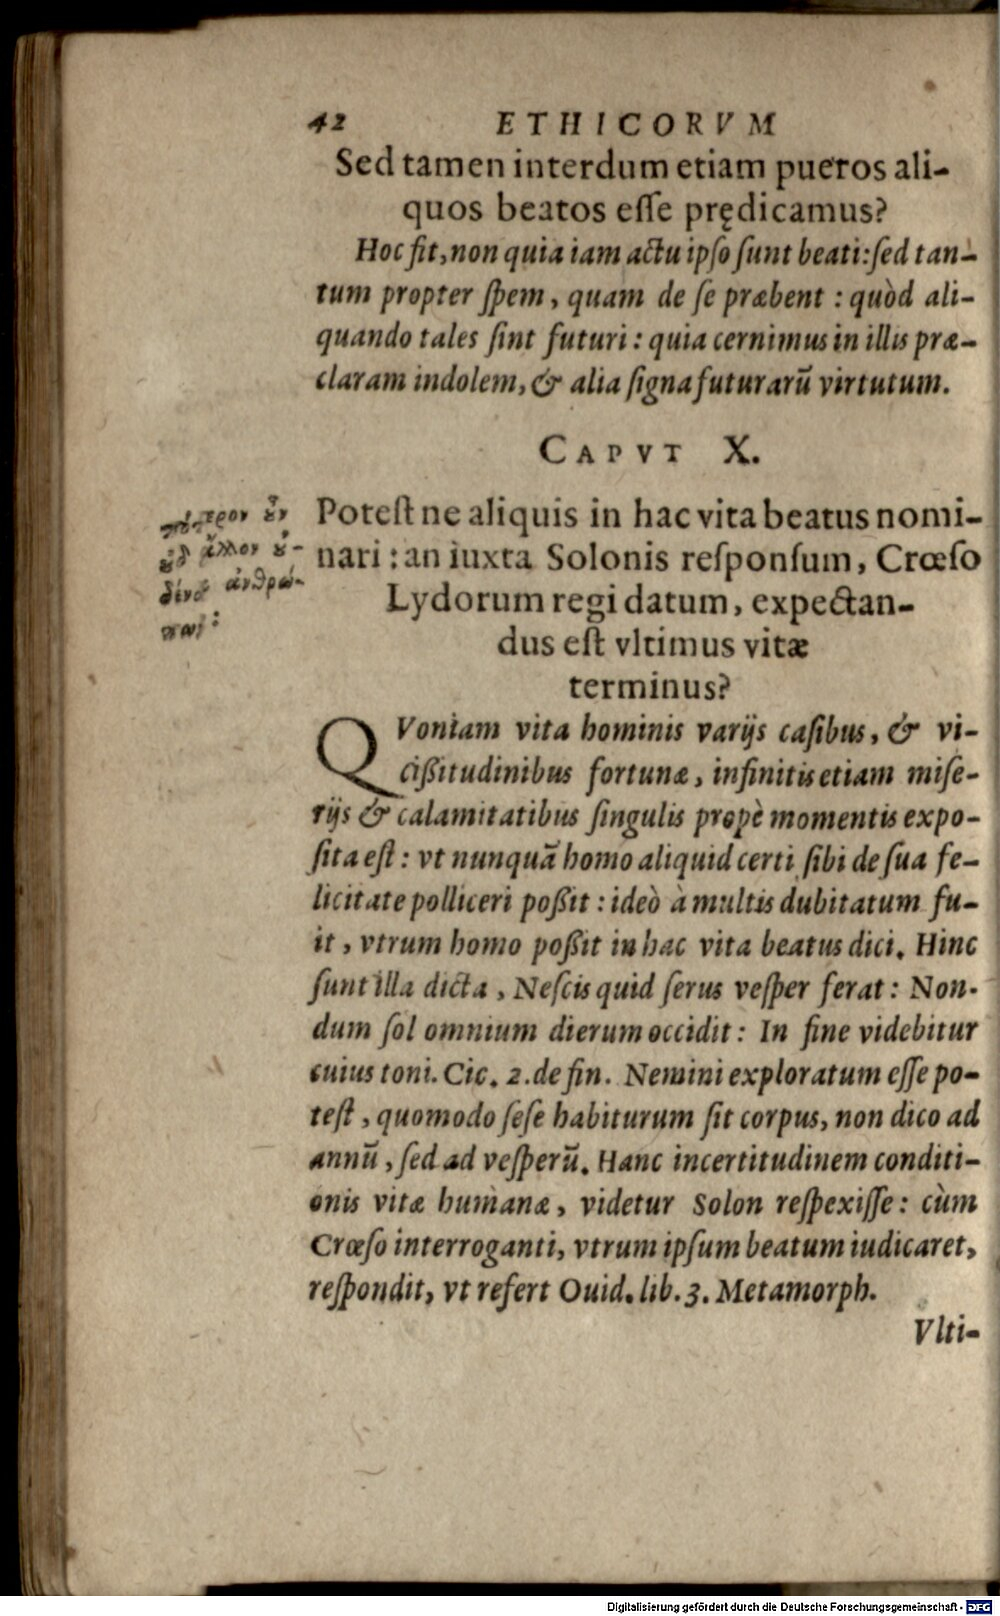 42 ETHICORVM
Sed tamen interdum etiam pueros ali-
quos beatos eſſe prędicamus?
Hoc fit, non quia iam actu ipſo ſunt beati: ſed tan-
tum propter ſpem, quam de ſe præbent: quòd ali-
quando tales ſint futuri: quia cernimus in illis præ-
claram indolem, & alia ſigna futurarū virtutum.
CAPVT X.
πότερον ἦν
οὐδ᾽ ἄλλον οὐ-
δένα ἀνθρώ-
Poteſtne aliquis in hac vita beatus nomi-
nari: an iuxta Solonis reſponſum, Crœſo
Lydorum regi datum, expectan-
dus eſt vltimus vitæ
terminus?
QVoniam vita hominis varijs caſibus, & vi-
ciſſitudinibus fortunæ, infinitis etiam miſe-
rijs & calamitatibus ſingulis propè momentis expo-
ſita eſt: vt nunquā homo aliquid certi ſibi de ſua fe-
licitate polliceri poſſit: ideò à multis dubitatum fu-
it, vtrum homo poſſit in hac vita beatus dici. Hinc
ſunt illa dicta, Neſcis quid ſerus veſper ferat: Non-
dum ſol omnium dierum occidit: In fine videbitur
cuius toni. Cic. 2. de fin. Nemini exploratum eſſe po-
teſt, quomodo ſeſe habiturum ſit corpus, non dico ad
annū, ſed ad veſperū. Hanc incertitudinem conditi-
onis vitæ humanæ, videtur Solon reſpexiſſe: cùm
Crœſo interroganti, vtrum ipſum beatum iudicaret,
reſpondit, vt refert Ouid. lib. 3. Metamorph.
Vlti-
Digitalisierung gefördert durch die Deutsche Forschungsgemeinschaft - DFG